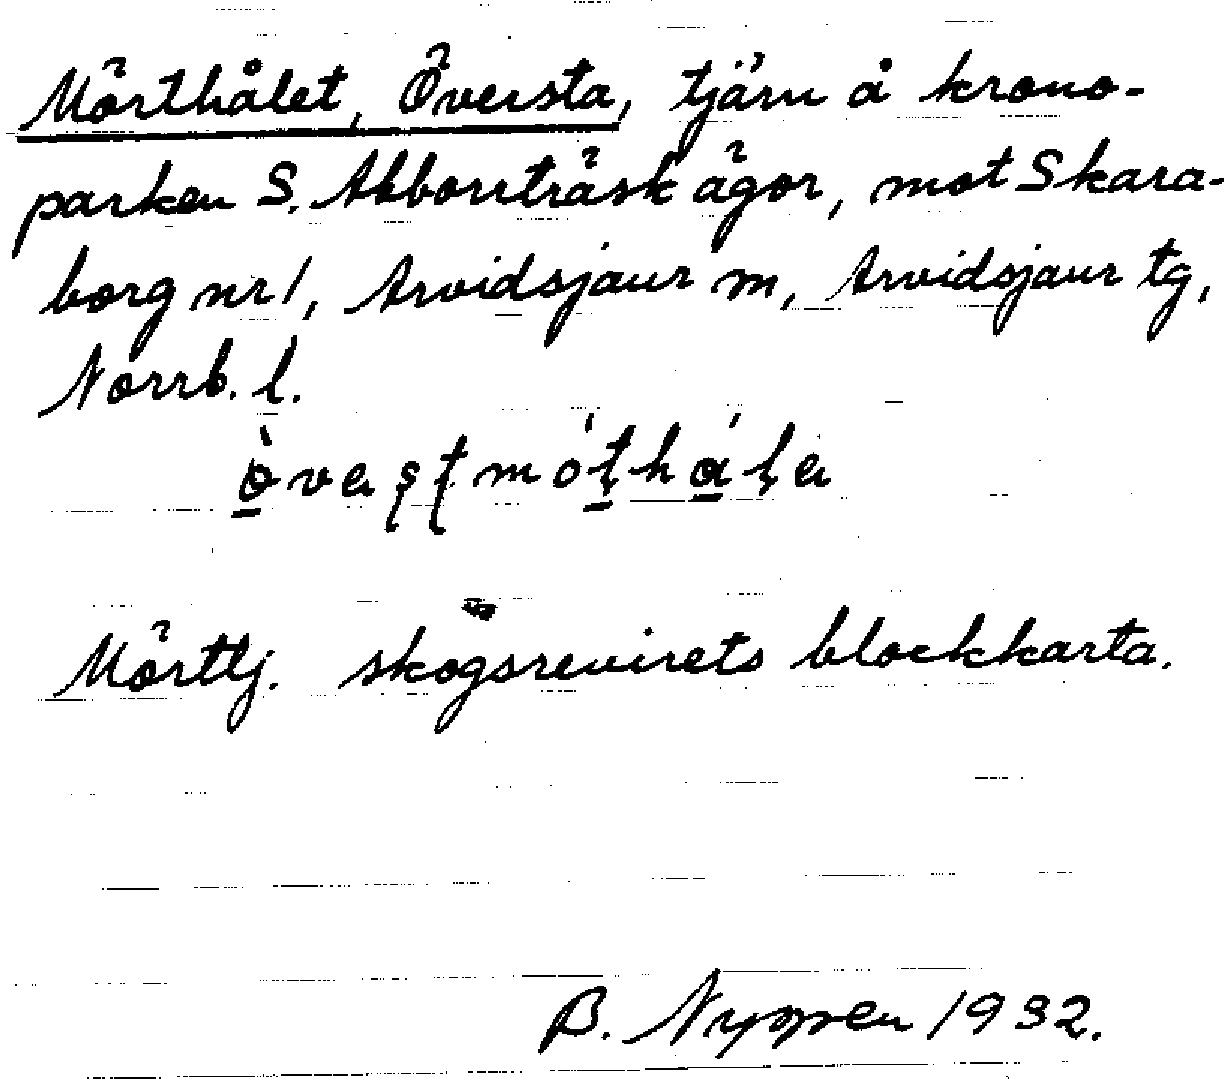 Mörthålet, Översta, tjärn å krono-
parken S. Abborrträsk ägor, mot Skara-
borg nr 1, Arvidsjaur m, Arvidsjaur tg,
Norrb. l.
Mörttj. skogsrevirets blockkarta.
B. Nyppen 1932.